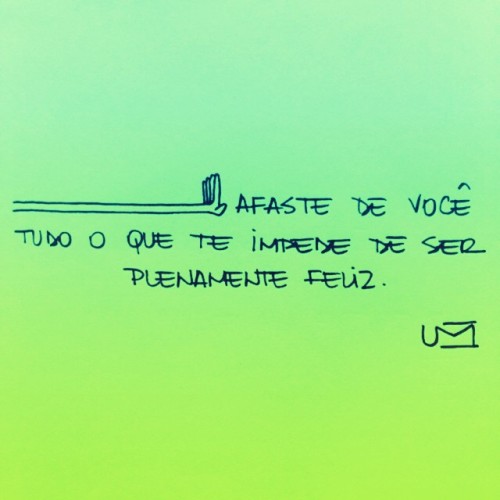 AFASTE DE VOCÊ
TUDO O QUE TE IMPEDE DE SER
PLENAMENTE FELIZ.
UM